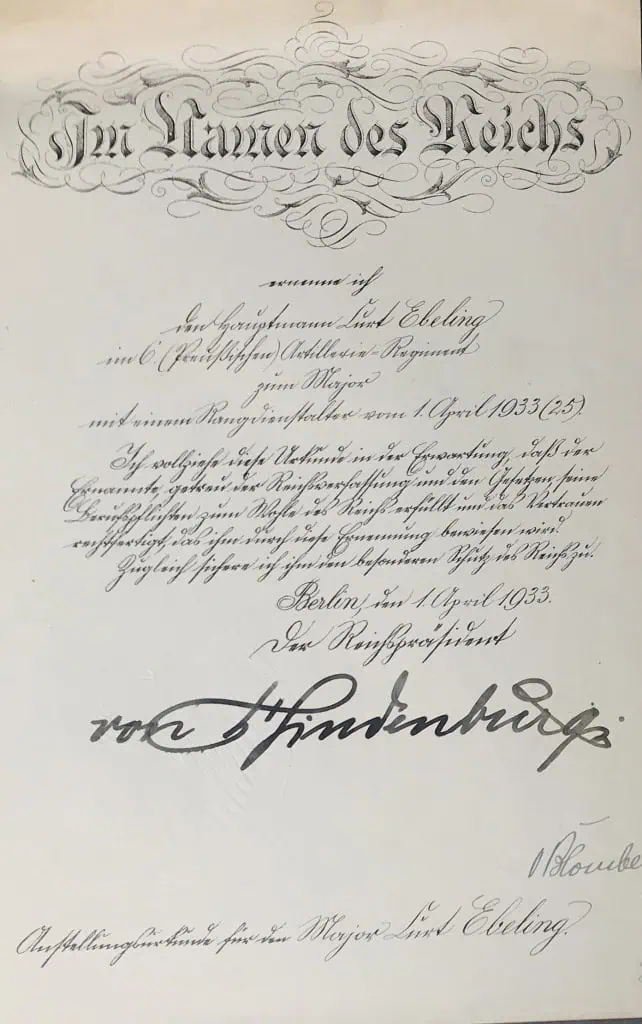 Im Namen des Reichs
ernenne ich
den Hauptmann Curt Ebeling
im 6. (Preußischen) Artillerie-Regiment
zum Major
mit einem Rangdienstalter vom 1. April 1933 (25).
Ich vollziehe diese Urkunde in der Erwartung, daß der
Ernannte getreu der Reichsverfassung und den Gesetzen seine
Berufspflichten zum Wohle des Reichs erfüllt und das Vertrauen
rechtfertigt, das ihm durch diese Ernennung bewiesen wird.
Zugleich sichere ich ihm den besonderen Schutz des Reichs zu.
Berlin, den 1. April 1933.
Der Reichspräsident
von Hindenburg
v Blombe
Anstellungsurkunde für den Major Curt Ebeling.